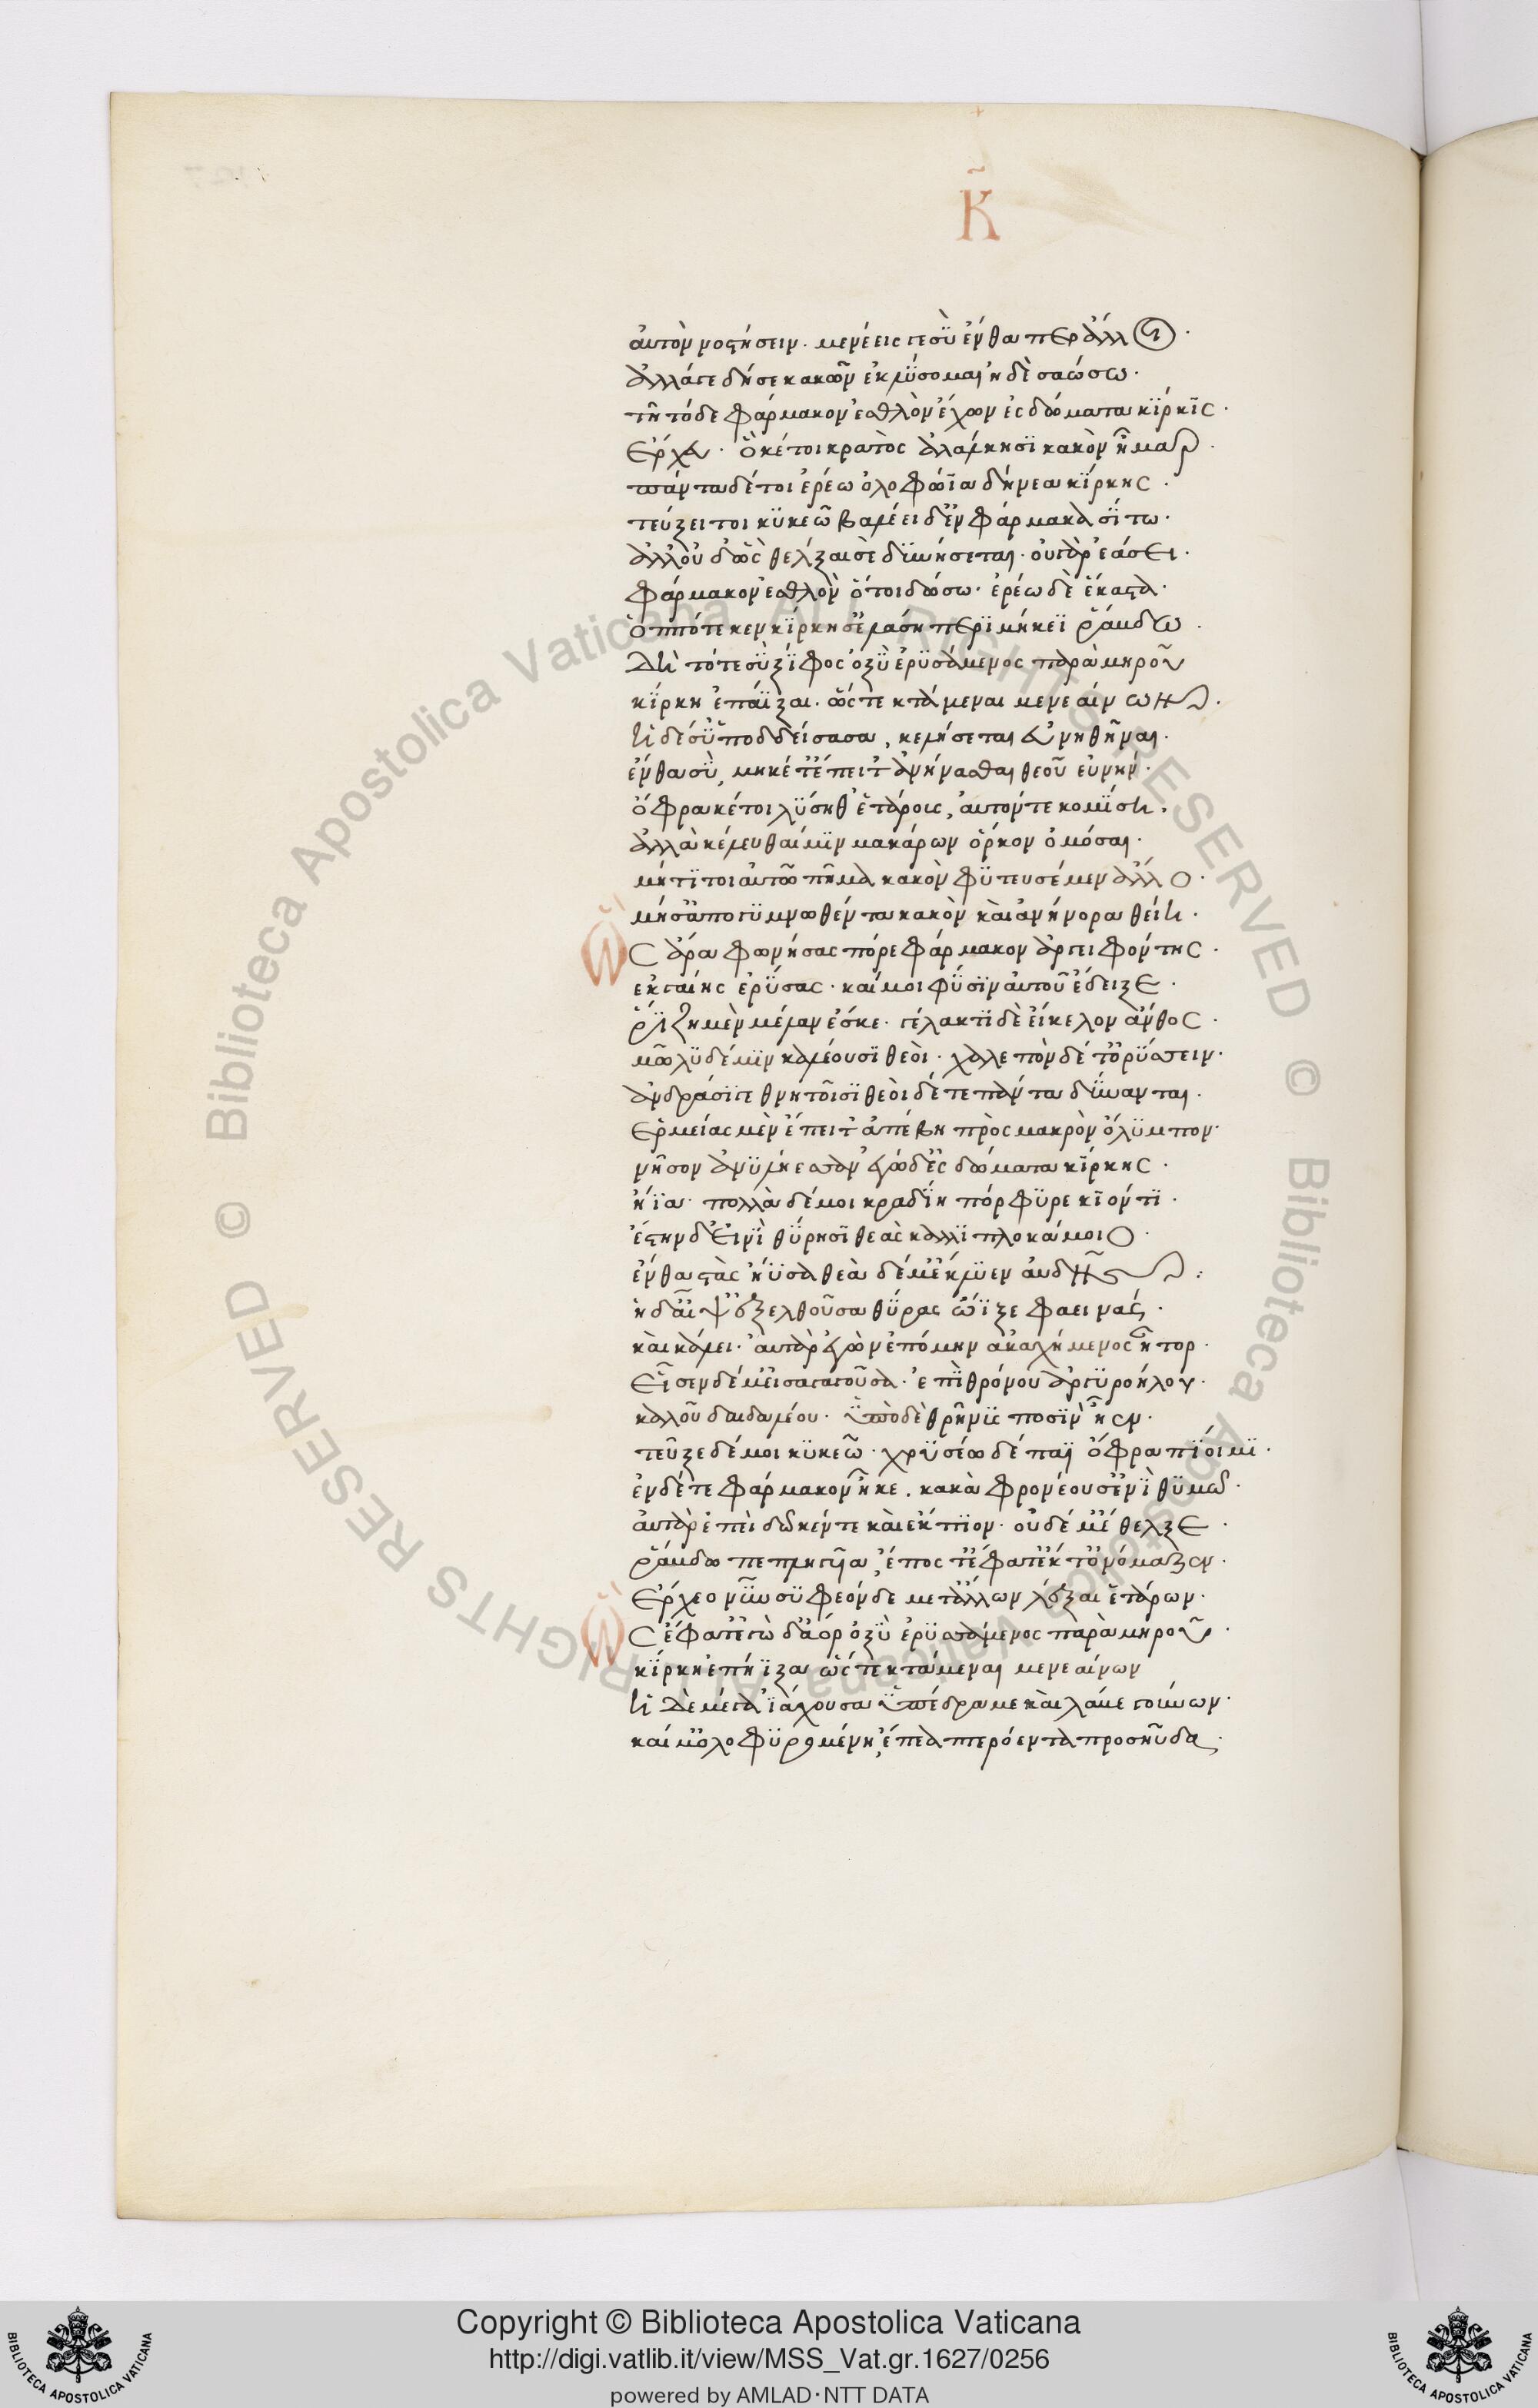 Κ
αὐτὸν νοστήσειν. μενέεις γε σὺ ἔνθα περ ἄλλοι.
ἀλλάγε δή σε κακῶν ἐκλύσομαι ἠδὲ σαώσω.
τῆ τόδε φάρμακον ἐσθλὸν ἔχων ἐς δώματα κίρκις.
ἔρχευ. ὅ κέ τοι κρατὸς ἀλάλκησι κακὸν ἦμαρ.
πάντα δέ τοι ἐρέω ὀλοφώϊα δήνεα κίρκης.
τεύξει τοι κυκεῶ βαλέει δ' ἐν φάρμακα σίτω.
ἀλλ' οὐδ' ὧς θέλξαι σὲ δυνήσεται. οὐ γὰρ ἐάσει.
φάρμακον ἐσθλὸν ὅ τοι δώσω. ἐρέω δὲ ἕκαστα.
ὁππότε κεν κίρκη σ' ἐλάση περιμήκεϊ ῥάβδω.
δὴ τότε σὺ ξίφος ὀξὺ ἐρυσάμενος παρὰ μηροῦ
κίρκη ἐπάϊξαι. ὥς τε κτάμεναι μενεαίνων.
ἡ δέ σ' ὑποδδείσασα, κελήσεται εὐνηθῆναι.
ἔνθα σὺ, μηκέτ' ἔπειτ' ἀνήνασθαι θεοῦ εὐνήν.
ὄφρα κέ τοι λύση θ' ἑτάροις, αὐτόν τε κομίση.
ἀλλὰ κέλευθαί μιν μακάρων ὅρκον ὀμόσαι.
μήτι τοι αὐτῶ πῆμα κακὸν φυτευσέμεν ἄλλο.
μή σ' ἀπογυμνωθέντα κακὸν καὶ ἀνήνορα θείη.
Ὣς ἄρα φωνήσας πόρε φάρμακον ἀργειφόντης.
ἐκ γαίης ἐρύσας. καί μοι φύσιν αὐτοῦ ἔδειξε.
ῥίζη μὲν μέλαν ἔσκε. γάλακτι δὲ εἴκελον ἄνθος.
μῶλυ δέ μιν καλέουσι θεοὶ. χαλεπὸν δέ τ' ὀρύσσειν.
ἀνδράσι γε θνητοῖσι θεοὶ δέ τε πάντα δύνανται.
Ἑρμείας μὲν ἔπειτ' ἀπέβη πρὸς μακρὸν ὄλυμπον.
νῆσον ἀνυλήεσσαν ἐγὼ δ' ἐς δώματα κίρκης.
ἤϊα. πολλὰ δέ μοι κραδίη πόρφυρε κιόντι.
ἔστην δ' εἰνὶ θύρησι θεᾶς καλλιπλοκάμοιο.
ἔνθα στὰς ἤϋσα θεὰ δέ μ' ἔκλυεν αὐδῆς:
ἡ δ' αἶψ' ἐξελθοῦσα θύρας ὤϊξε φαεινάς.
καὶ κάλει. αὐτὰρ ἐγὼν ἑπόμην ἀκαχήμενος ἦτορ.
εἷσεν δέ μ' εἰσαγαγοῦσα. ἐπὶ θρόνου ἀργυροήλου.
καλοῦ δαιδαλέου. ὑπὸ δὲ θρῆνυς ποσὶν ἦεν.
τεῦξε δέ μοι κυκεῶ. χρυσέω δέπαϊ ὄφρα πίοιμι.
ἐν δέ τε φάρμακον ἧκε. κακὰ φρονέουσ' ἐνὶ θυμῶ.
αὐτὰρ ἐπεὶ δῶκέν τε καὶ ἔκπιον. οὐδέ μ' ἔθελξε.
ῥάβδω πεπληγυῖα, ἔπος τ' ἔφατ' ἔκ τ' ὀνόμαζεν.
ἔρχεο νῦν συφεόνδε μετ' ἄλλων λέξαι ἑτάρων.
Ὣς ἔφατ' ἐγὼ δ' ἄορ ὀξὺ ἐρυσσάμενος παρὰ μηροῦ.
κίρκη ἐπήϊξα ὥς τε κτάμεναι μενεαίνων
ἡ δὲ μέγα ἰάχουσα ὑπέδραμε καὶ λάβε γούνων.
καί μ' ὀλοφυρομένη, ἔπεα πτερόεντα προσηύδα.
Copyright © Biblioteca Apostolica Vaticana
http://digi.vatlib.it/view/MSS_Vat.gr.1627/0256
powered by AMLAD·NTT DATA